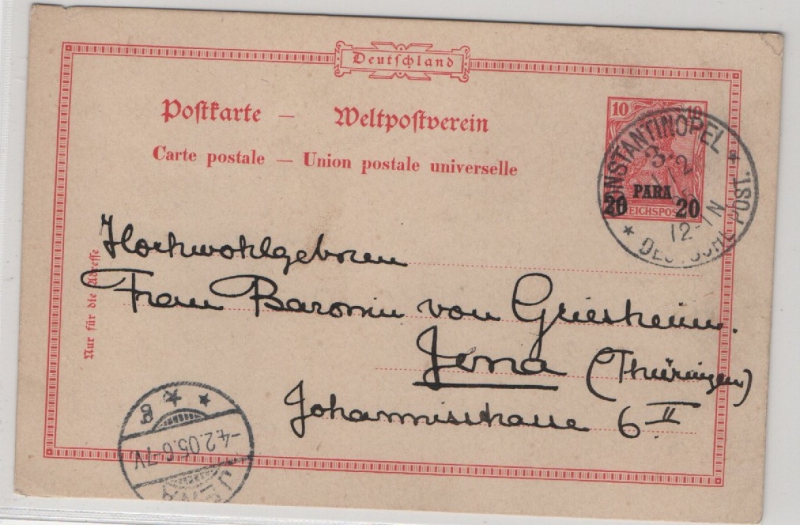 Deutschland
Postkarte — Weltpostverein
Carte postale — Union postale universelle
10 10
20 PARA 20
REICHSPOST
CONSTANTINOPEL
12-1N
Hochwohlgeboren
Frau Baronin von Griesheim.
Jena (Thüringen)
Johannisstrasse 6 II
Nur für die Adresse
JENA
-4.2.05.6-7V